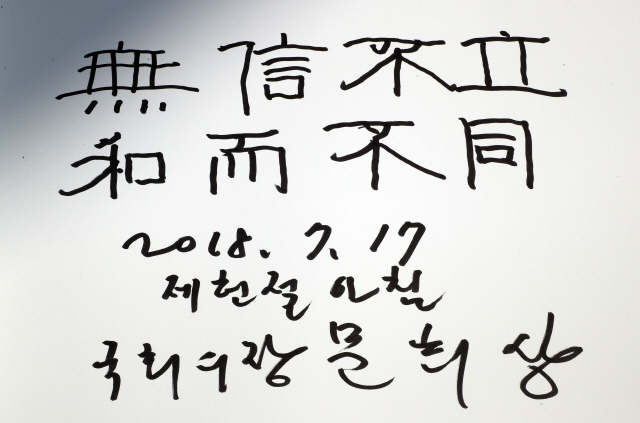 無信不立
和而不同
2018. 7. 17
제헌절 아침
국회의장 문희상